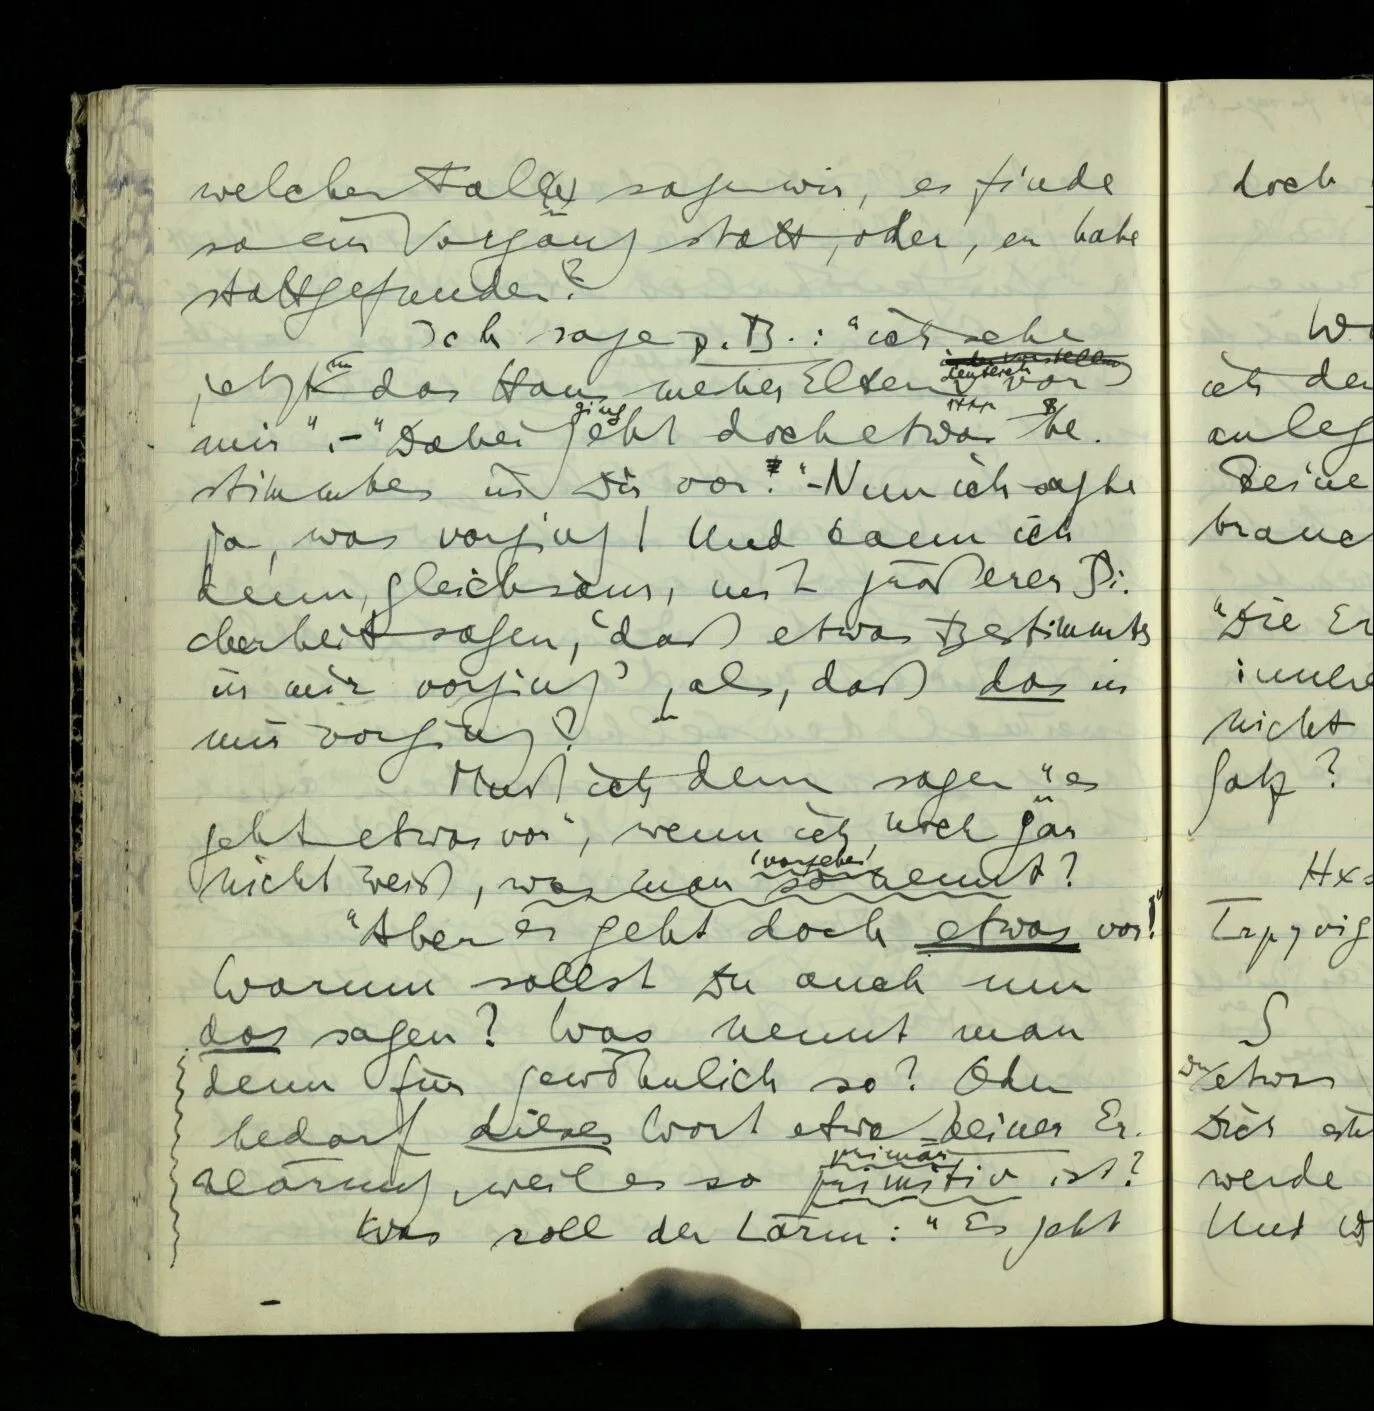 welchem Falle(n) sagen wir, es finde
so ein Vorgang statt, oder, er habe
stattgefunden?
Ich sage z.B.: "ich sehe
jetzt das Haus meiner Eltern deutlich vor
mir". – "Dabei ging geht doch etwas be-
stimmtes in Dir vor!" – Nun ich sagte
ja, was vorging! Und kann ich
denn, gleichsam, mit größerer Si-
cherheit sagen, 'daß etwas Bestimmtes
in mir vorging', als, daß das in
mir vorging?
Muß ich denn sagen "es
geht etwas vor", wenn ich noch gar
nicht weiß, was man so 'vorgehen' nennt?
"Aber es geht doch etwas vor!"
Warum sollst Du auch nun
das sagen? Was nennt man
denn für gewöhnlich so? Oder
bedarf dieses Wort etwa keiner Er-
klärung, weil es so primitiv primär ist?
Was soll der Lärm: "Es geht
doch
ich
anleg
Deine
brauch
"Die Er
innere
nicht
Satz?
etwas
Dich
werde
Und